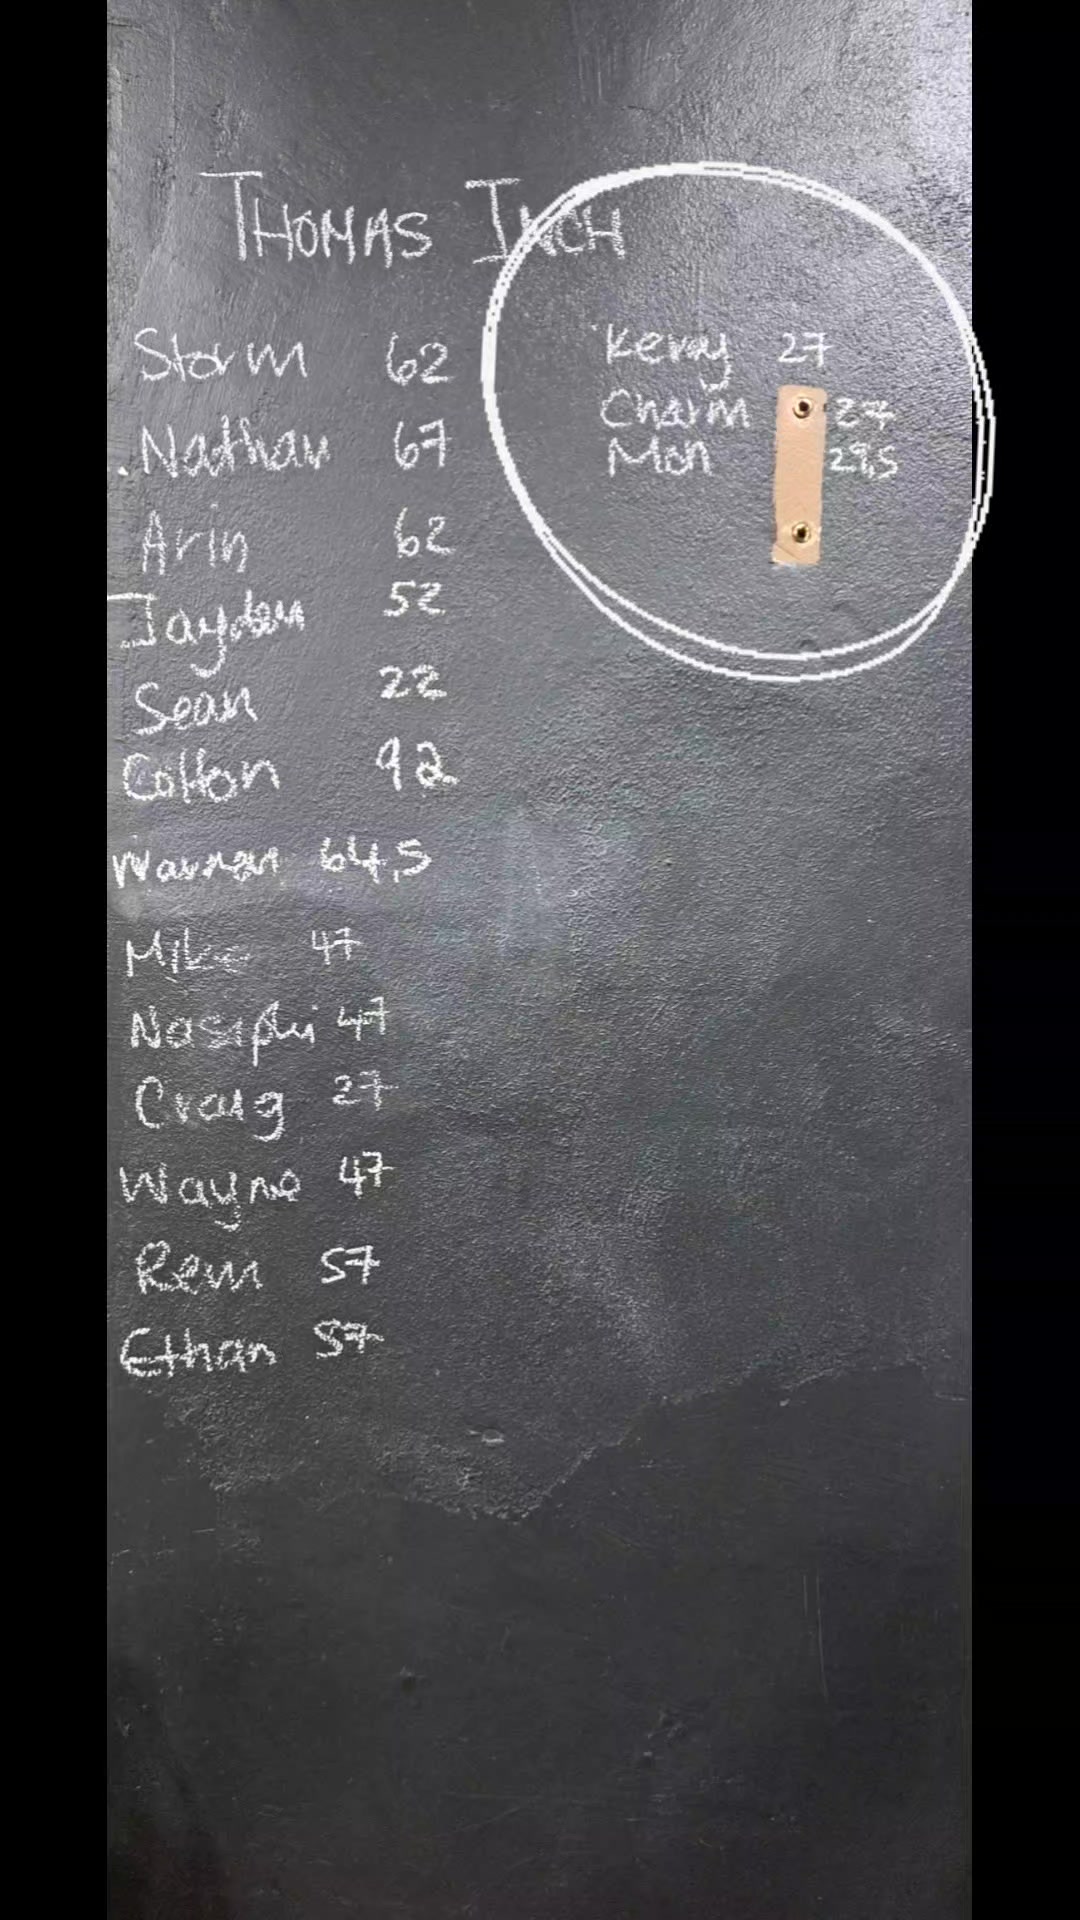 THOMAS INCH
Storm 62
Nathan 67
Arin 62
Jayden 52
Sean 22
Colton 92
Warren 64,5
Mike 47
Nasiphi 47
Craig 27
Wayne 47
Remi 57
Ethan 57
Kerry 27
Charm 27
Mon 29,5